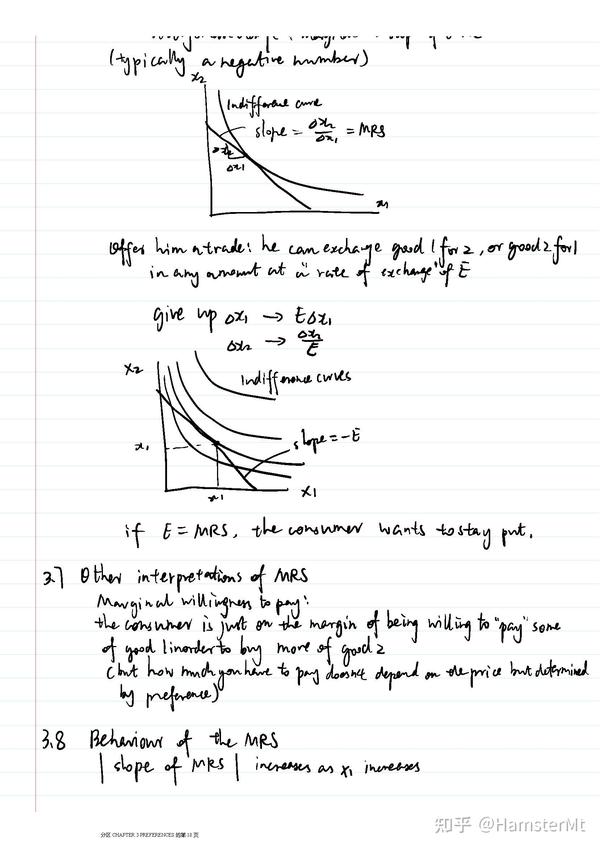 (typically a negative number)
x2
Indifference curve
slope = Δx2/Δx1 = MRS
Δx2
Δx1
x1
Offer him a trade: he can exchange good 1 for 2, or good 2 for 1
in any amount at a "rate of exchange" of E
give up Δx1 → EΔx1
Δx2 → Δx2/E
x2
Indifference curves
slope = -E
x1
x1
x1
if E = MRS, the consumer wants to stay put.
3.7 Other interpretations of MRS
Marginal willingness to pay:
the consumer is just on the margin of being willing to "pay" some
of good 1 in order to buy more of good 2
(but how much you have to pay doesn't depend on the price but determined
by preference)
3.8 Behaviour of the MRS
| slope of MRS | increases as x1 increases
分区 CHAPTER 3 PREFERENCES 的第 18 页
知乎 @HamsterMt